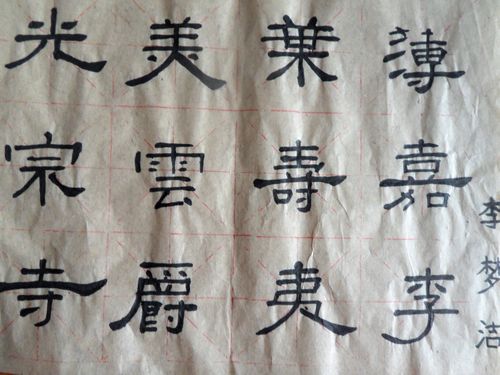 薄嘉李
葉壽夷
美雲爵
光宗寺
李梦洁